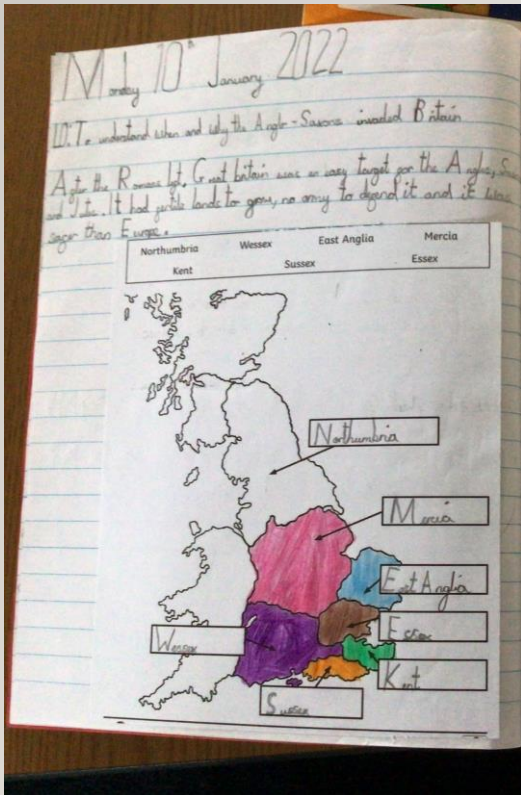 Monday 10th January 2022
LO: To understand when and why the Anglo-Saxons invaded Britain
After the Romans left, Great britain was an easy target for the Angles,
and Jutes. It had fertile lands to grow, no army to defend it and it was
safer than Europe.
Northumbria Wessex East Anglia Mercia
Kent Sussex Essex
Northumbria
Mercia
East Anglia
Essex
Wessex
Kent
Sussex